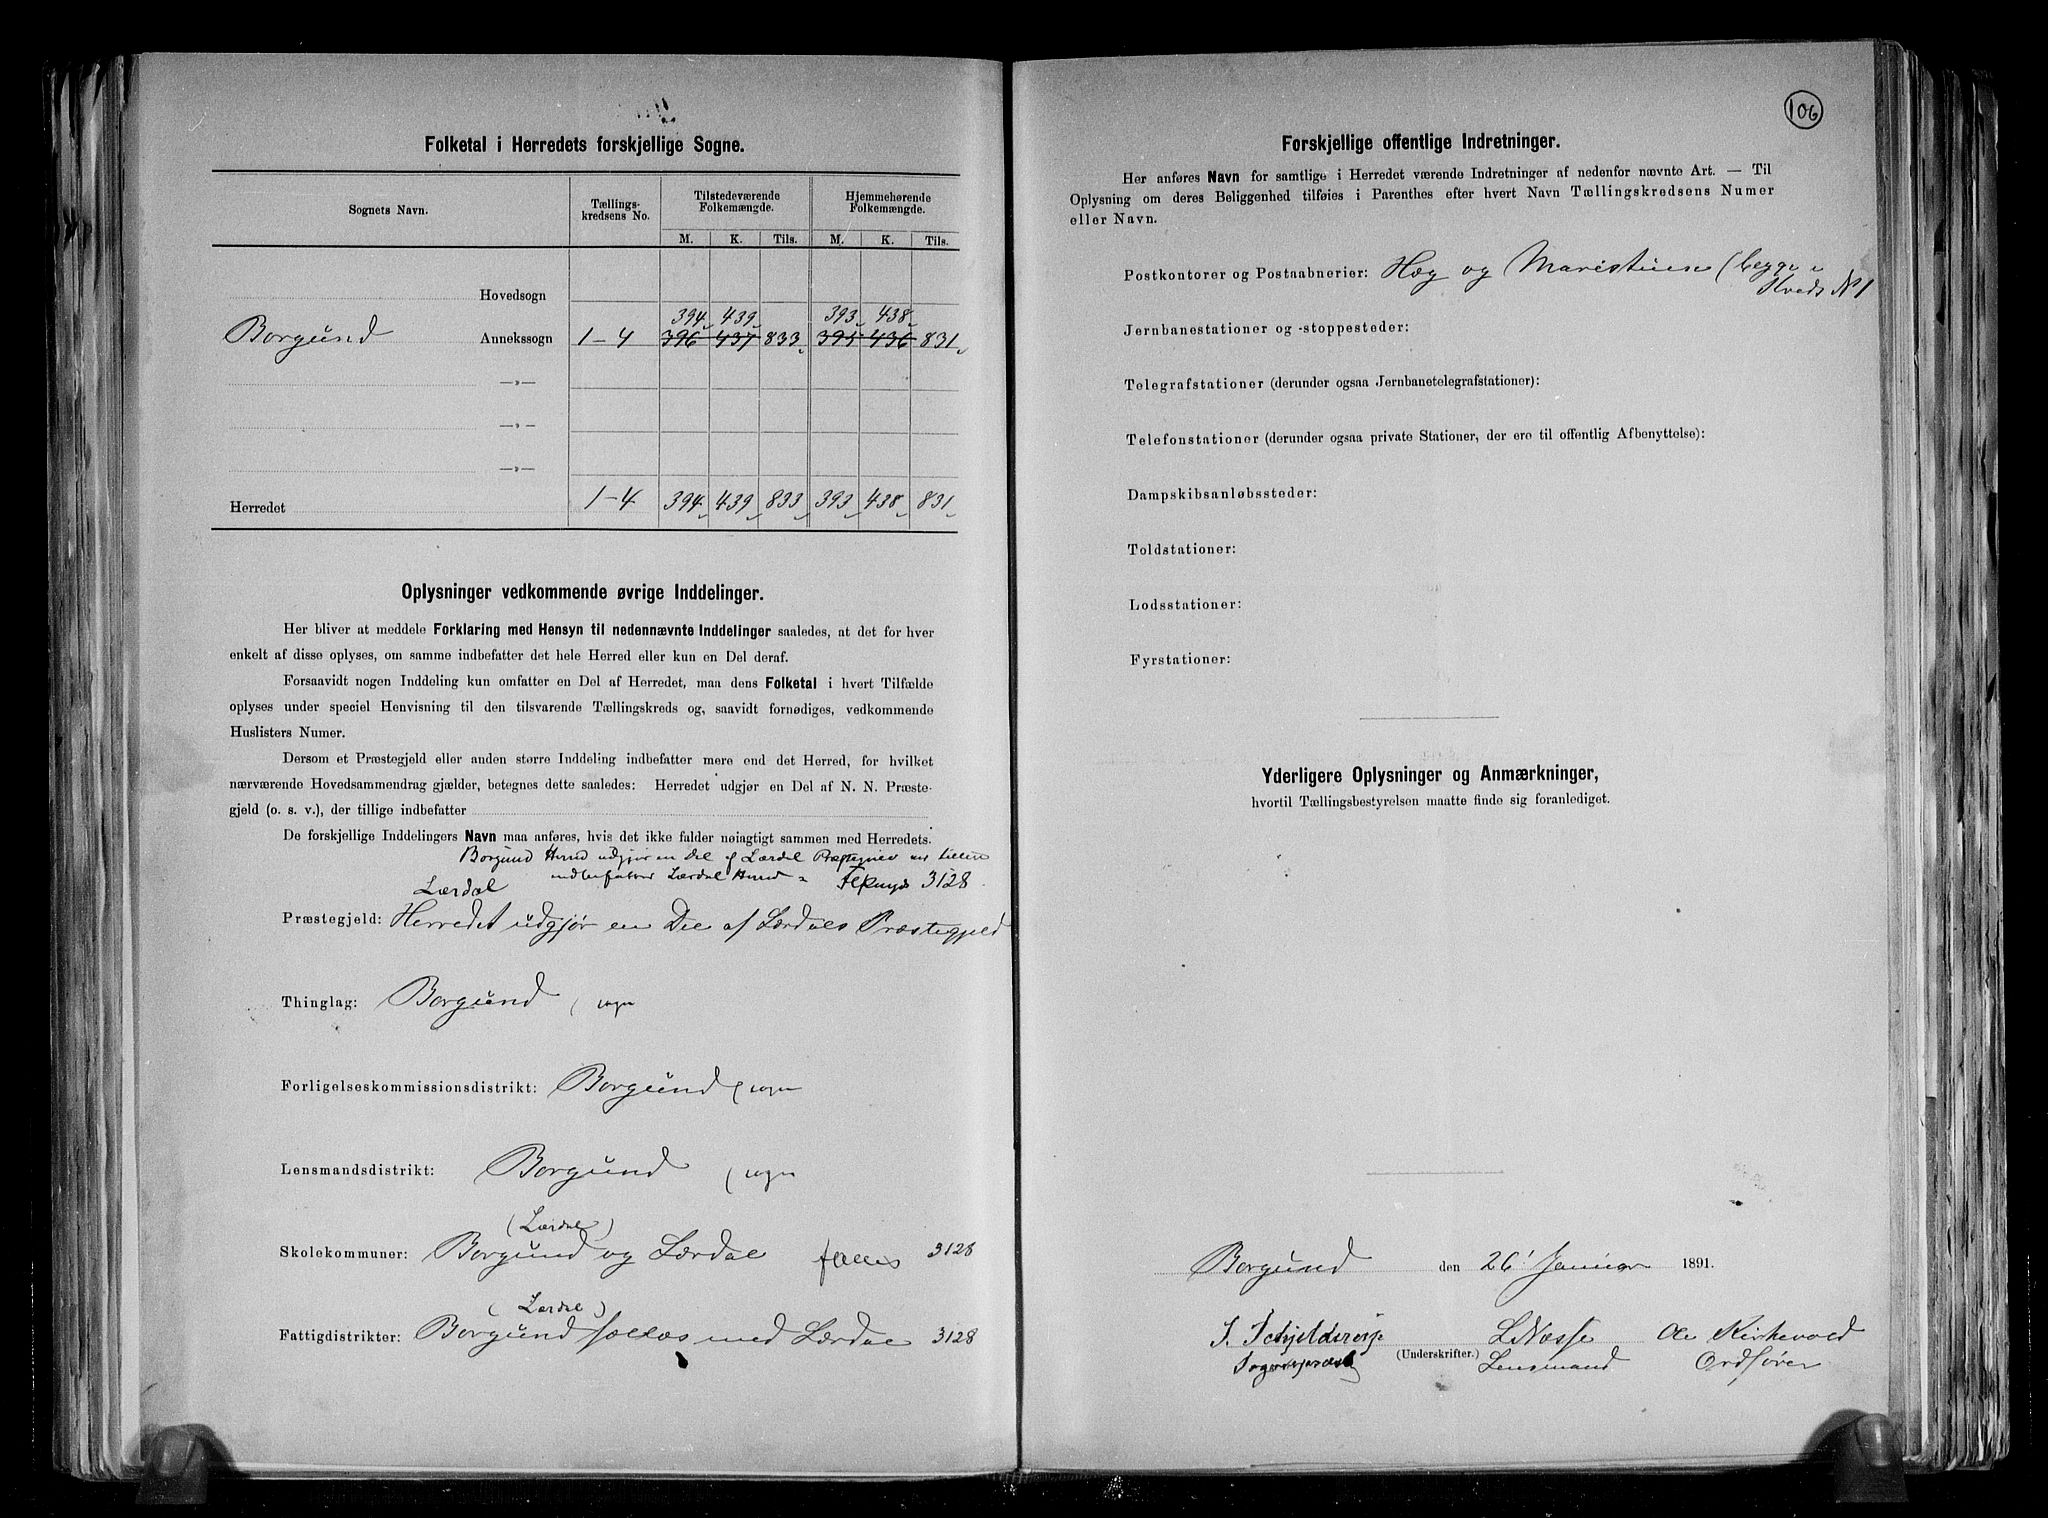 Folketal i Herredets forskjellige Sogne.
Sognets Navn. Tællings- kredsens No. Tilstedeværende Folkemængde. Hjemmehørende Folkemængde.
M. K. Tils. M. K. Tils.
Hovedsogn
394 439 393 438
Borgund Annekssogn 1-4 396 437 833 395 436 831
—„—
—„—
—„—
Herredet 1-4 394 439 833 393 438 831
Oplysninger vedkommende øvrige Inddelinger.
Her bliver at meddele Forklaring med Hensyn til nedennævnte Inddelinger saaledes, at det for hver
enkelt af disse oplyses, om samme indbefatter det hele Herred eller kun en Del deraf.
Forsaavidt nogen Inddeling kun omfatter en Del af Herredet, maa dens Folketal i hvert Tilfælde
oplyses under speciel Henvisning til den tilsvarende Tællingskreds og, saavidt fornødiges, vedkommende
Huslisters Numer.
Dersom et Præstegjeld eller anden större Inddeling indbefatter mere end det Herred, for hvilket
nærværende Hovedsammendrag gjælder, betegnes dette saaledes: Herredet udgjør en Del af N. N. Præste-
gjeld (o. s. v.), der tillige indbefatter
De forskjellige Inddelingers Navn maa anføres, hvis det ikke falder nøiagtigt sammen med Herredets.
Borgund Herred udgjør en Del af Lærdal
indbefatter Lærdal Herred 3128
Lærdal
Præstegjeld: Herredet udgjør en Del af Lærdals Præstegjeld
Thinglag: Borgund (sogn
Forligelseskommissionsdistrikt: Borgund (sogn
Lensmandsdistrikt: Borgund (sogn
(Lærdal)
Skolekommuner: Borgund og Lærdal fælles 3128
(Lærdal)
Fattigdistrikter: Borgund fælles med Lærdal 3128
106
Forskjellige offentlige Indretninger.
Her anføres Navn for samtlige i Herredet værende Indretninger af nedenfor nævnte Art. — Til
Oplysning om deres Beliggenhed tilføies i Parenthes efter hvert Navn Tællingskredsens Numer
eller Navn.
Postkontorer og Postaabnerier: Hæg og Maristuen (begge i
Kreds № 1
Jernbanestationer og -stoppesteder:
Telegrafstationer (derunder ogsaa Jernbanetelegrafstationer):
Telefonstationer (derunder ogsaa private Stationer, der ere til offentlig Afbenyttelse):
Dampskibsanløbssteder:
Toldstationer:
Lodsstationer:
Fyrstationer:
Yderligere Oplysninger og Anmærkninger,
hvortil Tællingsbestyrelsen maatte finde sig foranlediget.
Borgund den 26' Januar 1891.
L Næsse Ole Kirkevold
(Underskrifter.)
Sogneprest Lensmand Ordfører